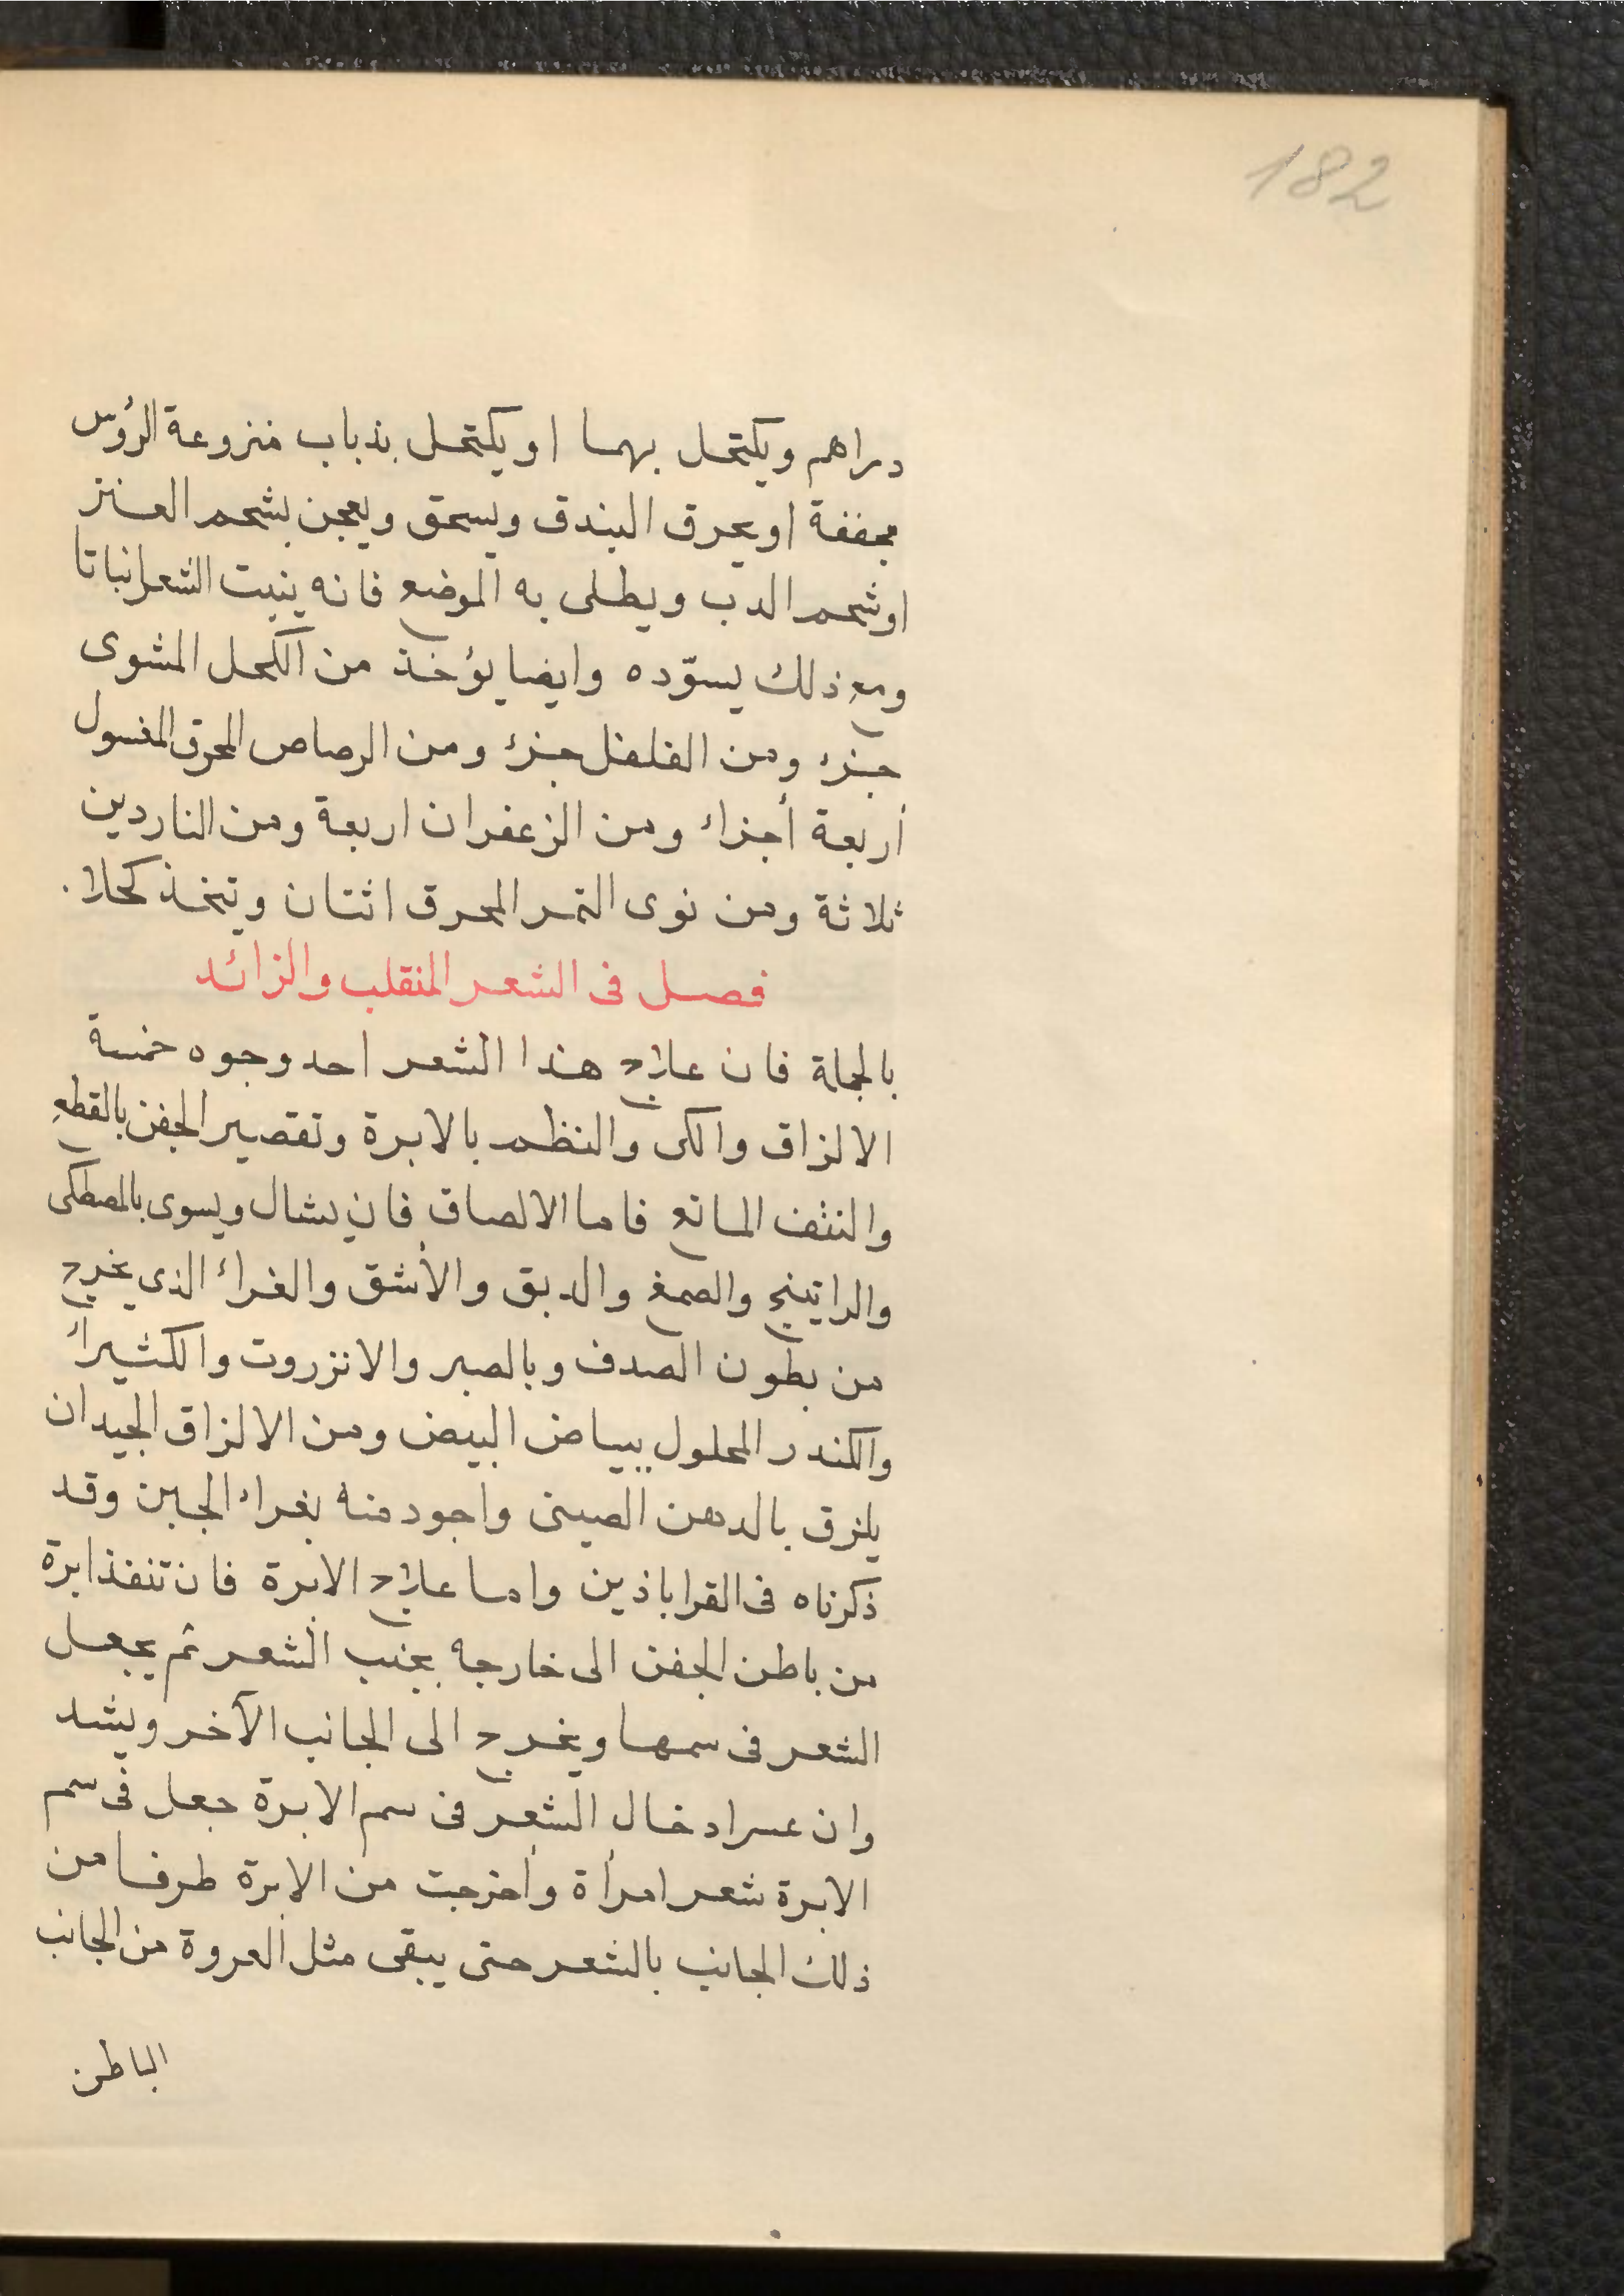 182
دراهم ويكتحل بهما او يكتحل بذباب منزوعة الرؤس
مجففة او يحرق البندق ويسحق ويعجن بشحم العنز
او شحم الدب ويطلى به الموضع فانه ينبت الشعر انباتا
ومع ذلك يسوّده وايضا يؤخذ من الكحل المشوى
جزء ومن الفلفل جزء ومن الرصاص المحرق المغسول
أربعة أجزاء ومن الزعفران اربعة ومن الناردين
ثلاثة ومن نوى التمر المحرق اثنتان ويتخذ كحلا .
فصل فى الشعر المنقلب والزائد
بالجملة فان علاج هذا الشعر احد وجوه خمسة
الالزاق والكى والنظم بالابرة وتقصير الجفن بالقطع
والنتف المانع فاما الالصاق فان يشال ويسوى بالمصطكى
والراتينج والصمغ والدبق والأشق والغراء الذى يخرج
من بطون الصدف وبالصبر والانزروت والكثيراء
والكندر المحلول ببياض البيض ومن الالزاق الجيد ان
يلزق بالدهن الصينى واجود منه بغراء الجبن وقد
ذكرناه فى القراباذين واما علاج الابرة فان تنفذ ابرة
من باطن الجفن الى خارجه بجنب الشعر ثم يجعل
الشعر فى سمها ويخرج الى الجانب الآخر ويشد
وان عسر ادخال الشعر فى سم الابرة جعل فى سم
الابرة شعر امرأة وأخرجت من الابرة طرفا من
ذلك الجانب بالشعر حتى يبقى مثل العروة من الجانب
الباطن